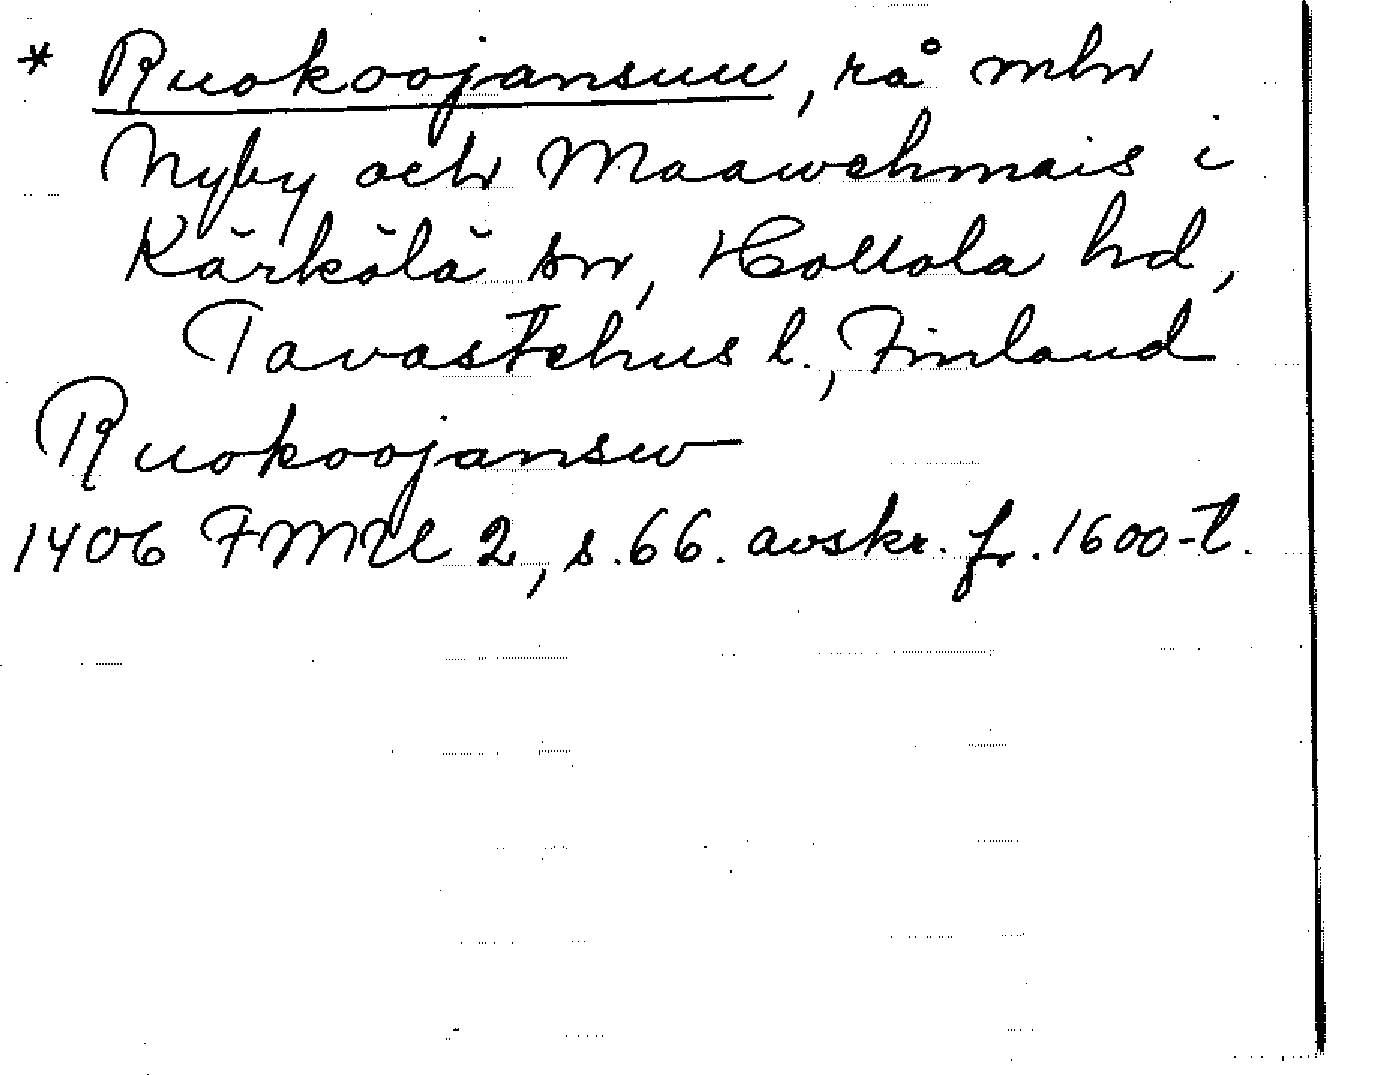 * Ruokoojansuu, rå mln
Nyby och Maawehmais i
Kärkölä sn, Hollola hd,
Tavastehus l., Finland
Ruokoojansw
1406 FMU 2, s. 66. avskr. fr. 1600-t.